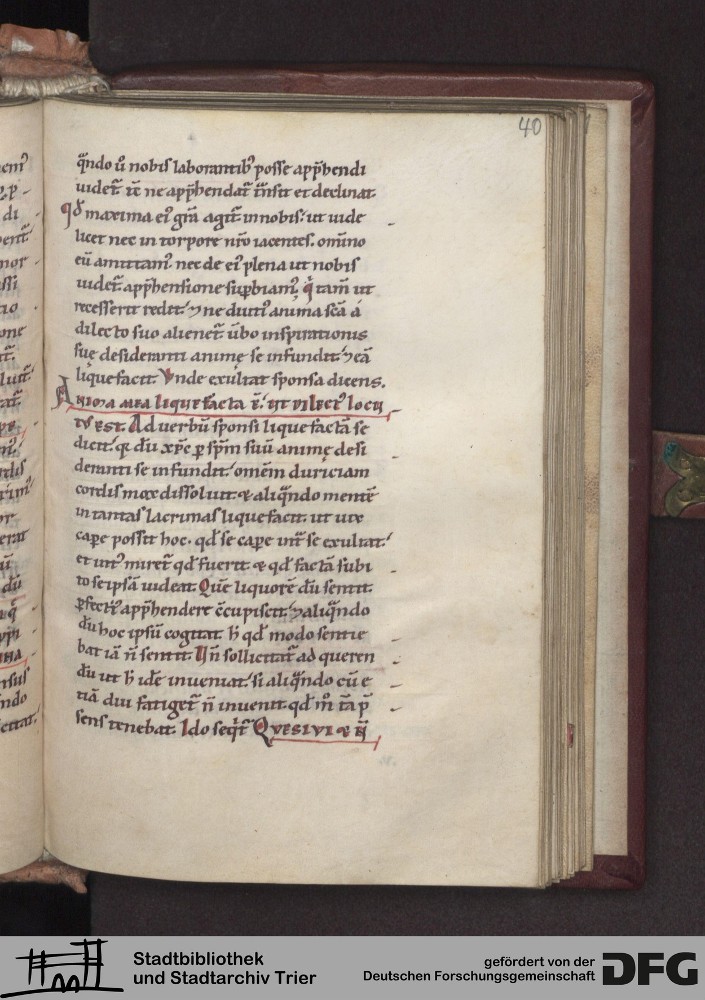 40
q̄ndo ů nobis laborantib' posse app̄hendi
uidet̄. iē ne app̄hendat̄ t̄nsit et declinat.
qd̄ maxima ei' gr̄a agit̄ in nobis. ut uide
licet nec in torpore nr̄o iacentes. om̄ino
eū amittam'. nec de ei' plena ut nobis
uidet̄ app̄hensione sup̄biam'. q̄ tam̄ ut
recesserit redit. ⁊ ne duti' anima sc̄a á
dilecto suo alienet̄. ūbo inspirationis
suę desideranti animę se infundit. ⁊ eā
liquefacit. Vnde exultat sponsa dicens.
Anima mea liquefacta ē. ut dilect' locu
tus est. Ad uerbū sponsi liquefactā se
dicit. q̄ dū xp̄c p̄ sp̄m suū animę desi
deranti se infundit. omēm duriciam
cordis mox dissoluit. & aliq̄ndo mentē
in tantas lacrimas liquefacit. ut uix
cape possit hoc. qd̄ se cape int̄ se exultat.
et int' miret̄ qd̄ fuerit & qd̄ factā subi
to se ipsā uideat. Quē liquorē dū sentit.
p̄fecti' app̄hendere c̄cupiscit. ⁊ aliq̄ndo
dū hoc ipsū cogitat. h̄ qd̄ modo sentie
bat iā n̄ sentit. Vn̄ sollicitat̄ ad queren
dū ut h̄ idē inueniat. si aliq̄ndo cū e
tiā diu fatiget̄ n̄ inuenit qd̄ m̊ tā p̄
sens tenebat. Ido seqt̄ Quesiui & n̄
Stadtbibliothek
und Stadtarchiv Trier
gefördert von der
Deutschen Forschungsgemeinschaft
DFG